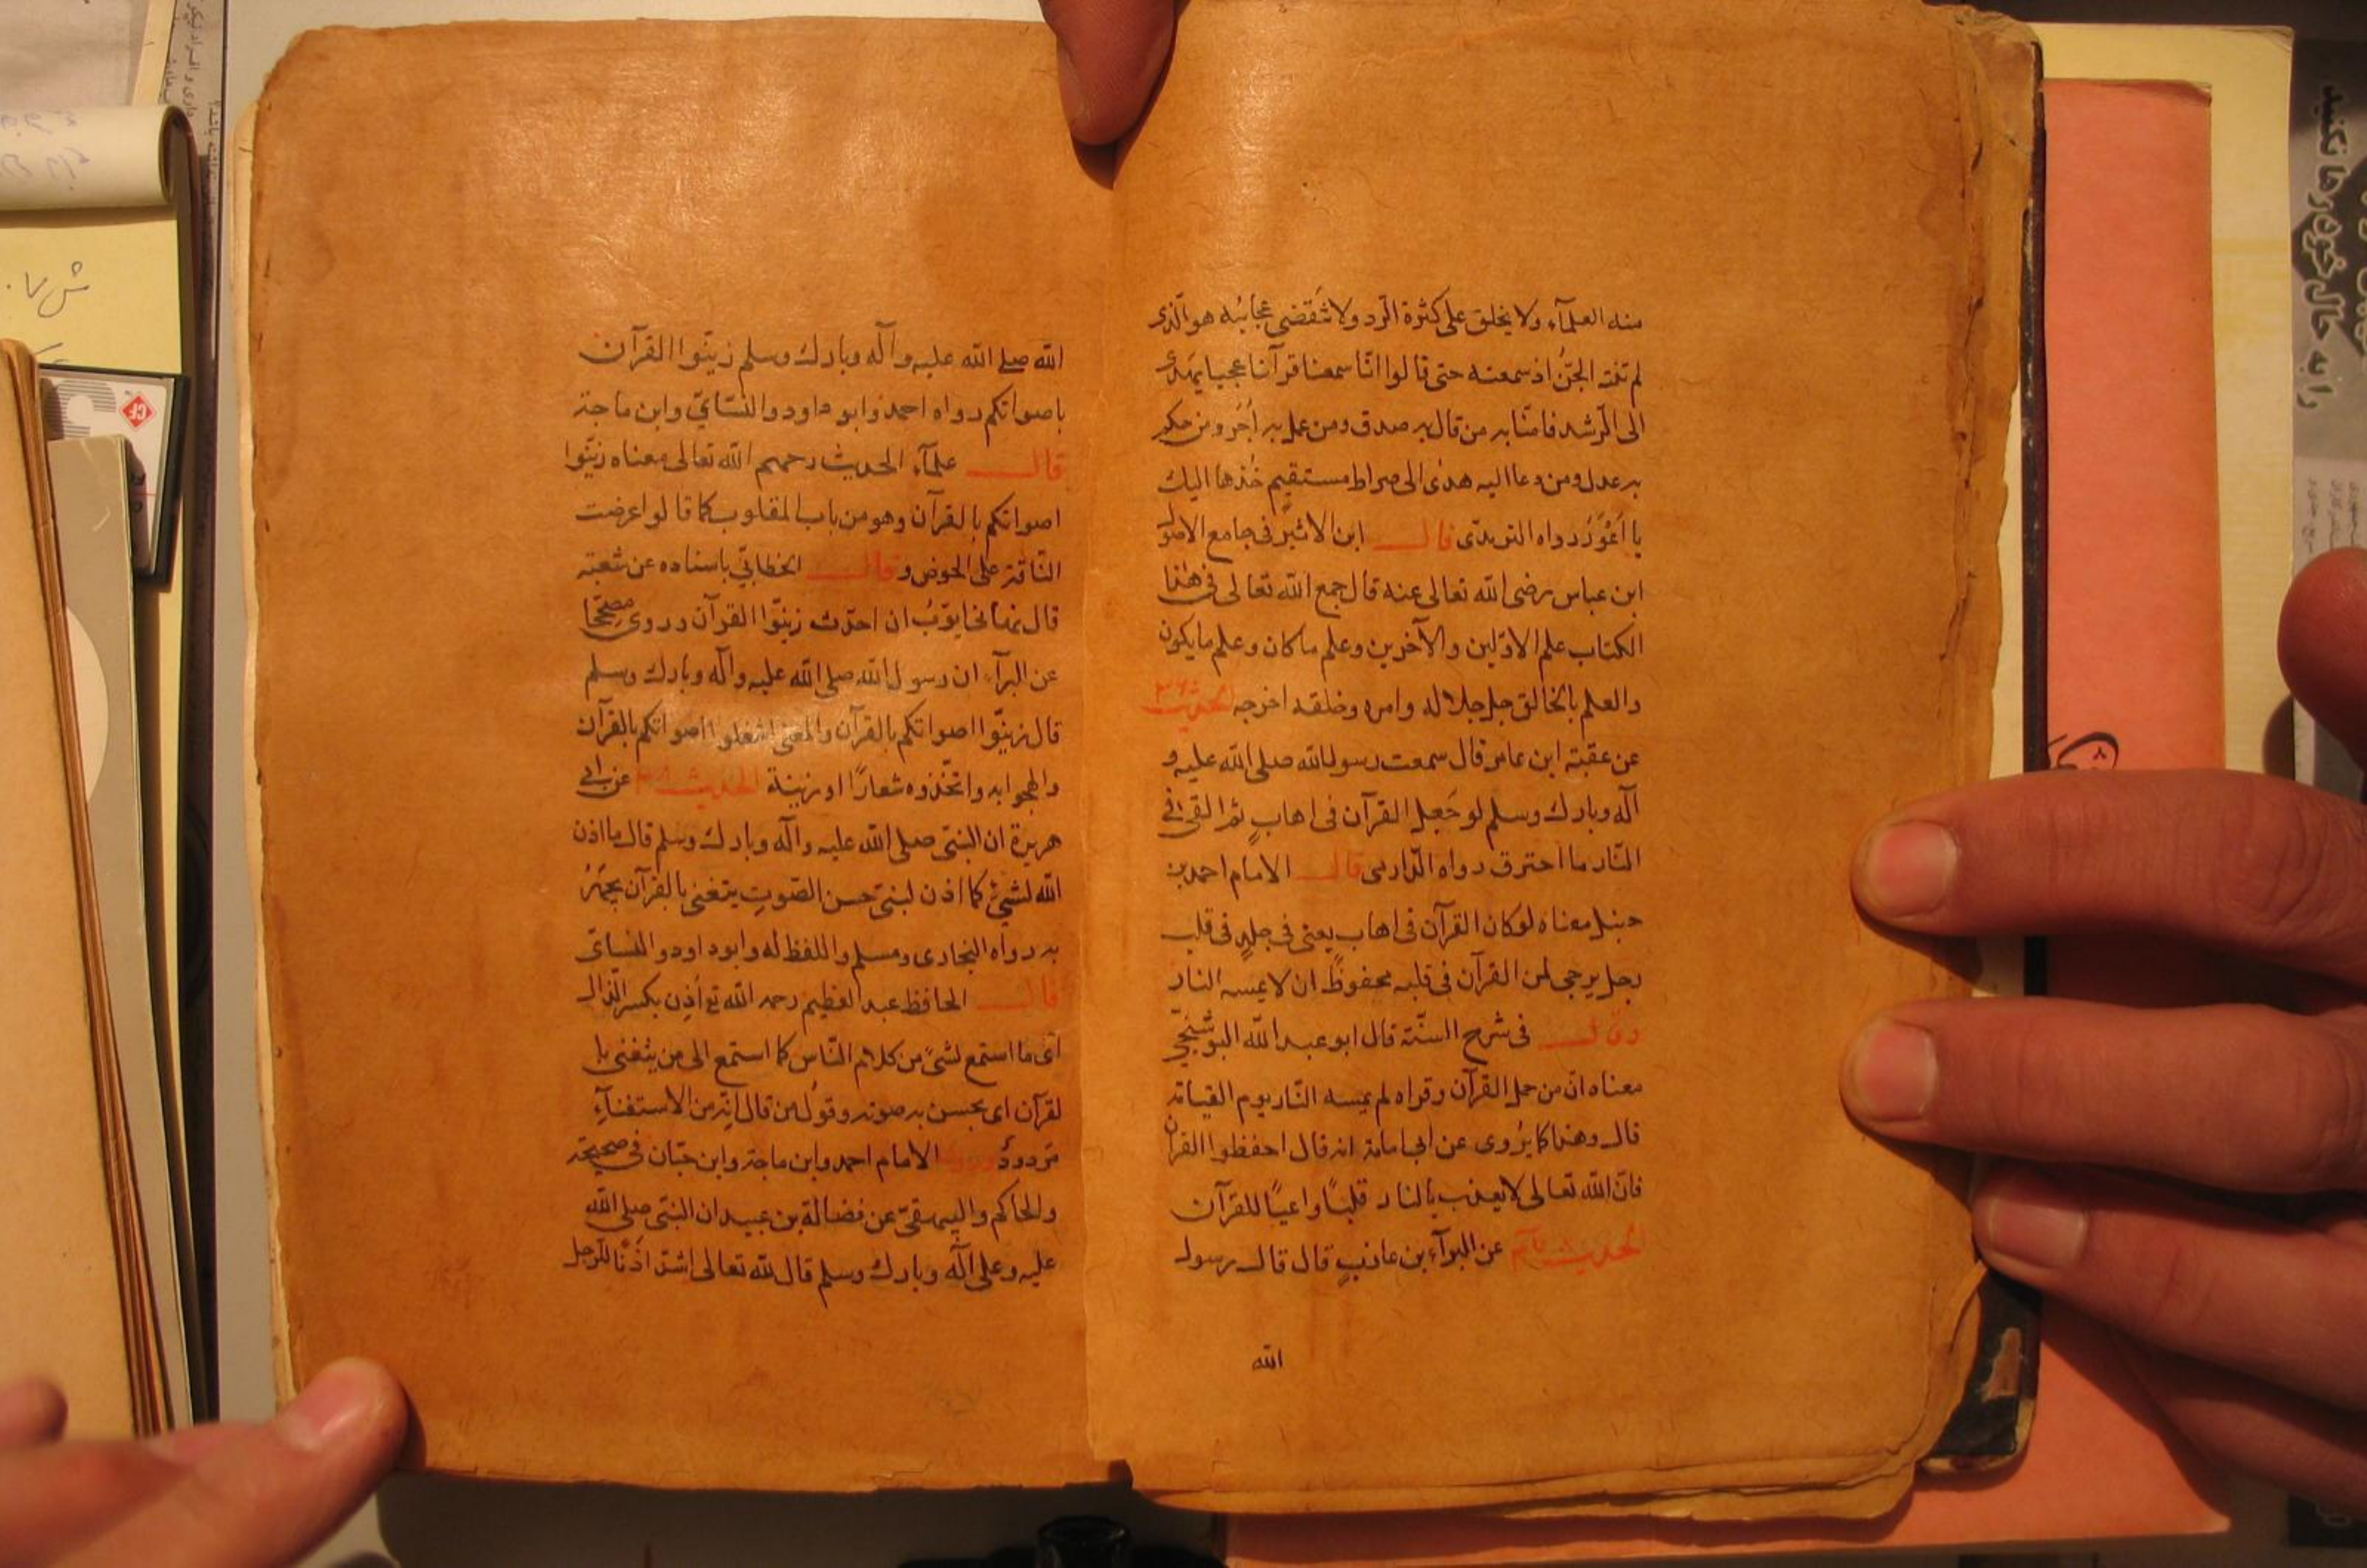 منه العلمآء ولا يخلق على كثرة الرّد ولا تنقضى عجائبه هو الّذى
لم تنته الجنّ اذ سمعته حتى قالوا انّا سمعنا قرآنا عجبا يهدى
الى الرّشد فامنّا به من قال به صدق ومن عمل به اُجر ومن حكم
به عدل ومن دعا اليه هدى الى صراط مستقيم خُذها اليك
يا اَعْوَرُ رواه الترمذى قال ابن الاثير فى جامع الاصول
ابن عباس رضى الله تعالى عنه قال جمع الله تعالى فى هذا
الكتاب علم الاوّلين والآخرين وعلم ما كان وعلم ما يكون
والعلم بالخالق جل جلاله وامره وخلقه اخرجه الحديث
عن عقبة ابن عامر قال سمعت رسول الله صلى الله عليه و
آله وبارك وسلم لو جُعِل القرآن فى اهابٍ ثم القى فى
النّار ما احترق رواه الدّارمى قال الامام احمد بن
حنبل معناه لو كان القرآن فى اهاب يعنى فى جلدٍ فى قلب
رجل يرجى لمن القرآن فى قلبه محفوظ ان لا يمسه النار
وقال فى شرح السنّة قال ابو عبد الله البوشنجّي
معناه انّ من حمل القرآن وقراه لم يمسه النّار يوم القيامة
قال وهذا كما يُروى عن ابى امامة انه قال احفظوا القرآن
فانّ الله تعالى لا يعذب بالنار قلبًا واعيًا للقرآن
الحديث عن البرآء بن عازبٍ قال قال رسول
الله
الله صلى الله عليه وآله وبارك وسلم زيّنوا القرآن
باصواتكم رواه احمد وابو داود والنّسَائيّ وابن ماجة
قال علمآء الحديث رحمهم الله تعالى معناه زيّنوا
اصواتكم بالقرآن وهو من باب المقلوب كما قالوا عرضت
النّاقة على الحوض وقال الخطابّي باسناده عن شعبة
قال نهانى ايّوبُ ان احدّث زيّنوا القرآن وروى مصحّحا
عن البرآء ان رسول الله صلى الله عليه وآله وبارك وسلم
قال زيّنوا اصواتكم بالقرآن والمعنى اشغلوا اصواتكم بالقرآن
والهجوا به واتّخذوه شعارًا او زينة الحديث عن ابى
هريرة ان النبّى صلى الله عليه وآله وبارك وسلم قال ما اذن
الله لشىءٍ كما اذن لنبىّ حسن الصّوتِ يتغنى بالقرآن يجهَرُ
به رواه البخارى ومسلم واللفظ له وابو داود والنسائى
قال الحافظ عبد العظيم رحمه الله تع أذِن بكسر الذّال
اى ما استمع لشىء من كلام النّاس كما استمع الى من يتغنى با
لقرآن اى يحسن به صوته وقول من قال انّه من الاستغنآءِ
مَردودٌ وروى الامام احمد وابن ماجة وابن حبّان فى صحيحه
والحاكم والبيهقىّ عن فضالة بن عبيد ان النبّى صلى الله
عليه وعلى آله وبارك وسلم قال لله تعالى اشدّ اَذَنًا للرّجل